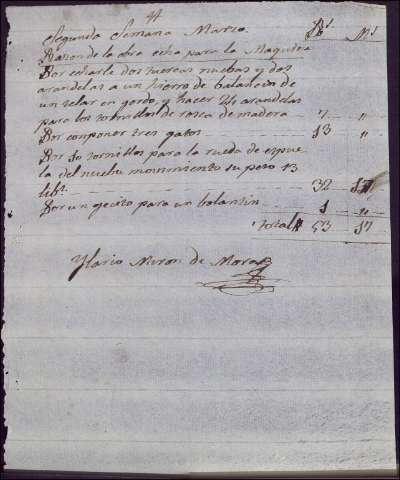 14
Segunda Semana Marzo. Rs. Ms.
Razon de la obra echa para la Maquina
Por echarle dos tuercas nuebas y dos
arandelas a un hierro de balancin de
un telar en gordo, y hacer 24 arandelas
para los tornillos de rosca de madera 7 "
Por conponer tres gatos 13 "
Por 50 tornillos para la rueda de espue
la del nuebo movimiento su peso 13
libs. 32 17
Por un gecito para un bolantin 1 "
total 53 17
Ylario Miron de Mora